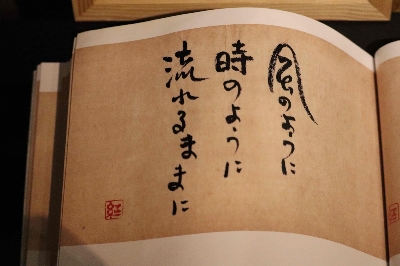 風のように
時のように
流れるままに